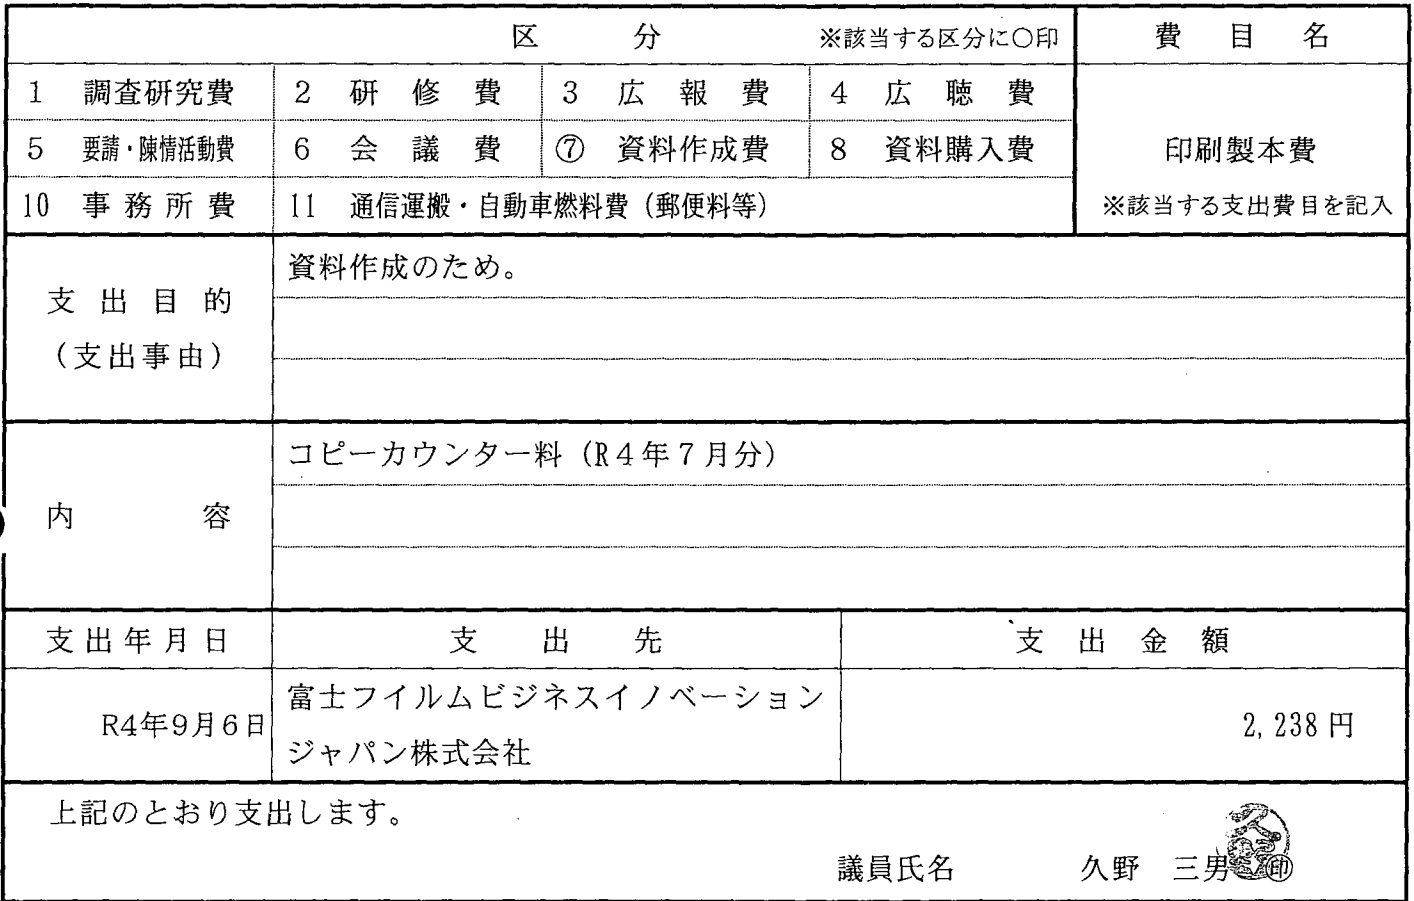 区　　　分　　※該当する区分に〇印
費　目　名
1　調査研究費　2　研　修　費　3　広　報　費　4　広　聴　費
5　要請・陳情活動費　6　会　議　費　⑦　資料作成費　8　資料購入費
印刷製本費
10　事務所費　11　通信運搬・自動車燃料費（郵便料等）
※該当する支出費目を記入
支出目的
（支出事由）
資料作成のため。
内　　容
コピーカウンター料（R４年７月分）
支出年月日　支　出　先　支　出　金　額
R4年9月6日
富士フイルムビジネスイノベーション
ジャパン株式会社
2,238円
上記のとおり支出します。
議員氏名　久野　三男　㊞